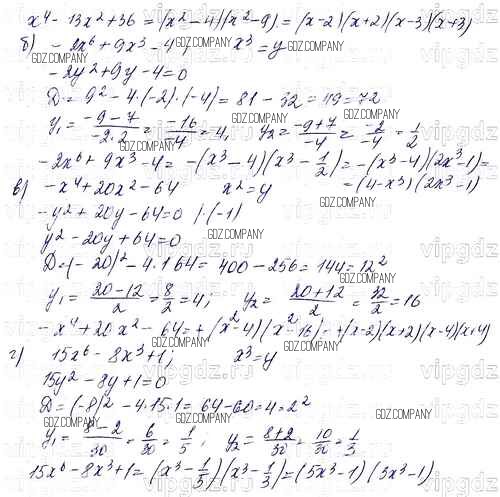 x⁴ - 13x² + 36 = (x² - 4)(x² - 9) = (x-2)(x+2)(x-3)(x+3)
б) - 2x⁶ + 9x³ - 4; x³ = y
- 2y² + 9y - 4 = 0
D = 9² - 4·(-2)·(-4) = 81 - 32 = 49 = 7²
y₁ = (-9-7)/(-2·2) = (-16)/(-4) = 4, y₂ = (-9+7)/(-4) = (-2)/(-4) = 1/2
- 2x⁶ + 9x³ - 4 = -(x³ - 4)(x³ - 1/2) = -(x³-4)(2x³-1) =
= (4-x³)(2x³-1)
в) - x⁴ + 20x² - 64 x² = y
- y² + 20y - 64 = 0 |·(-1)
y² - 20y + 64 = 0
D = (-20)² - 4·1·64 = 400 - 256 = 144 = 12²
y₁ = (20-12)/2 = 8/2 = 4; y₂ = (20+12)/2 = 32/2 = 16
- x⁴ + 20x² - 64 = -(x²-4)(x²-16) = -(x-2)(x+2)(x-4)(x+4)
г) 15x⁶ - 8x³ + 1; x³ = y
15y² - 8y + 1 = 0
D = (-8)² - 4·15·1 = 64 - 60 = 4 = 2²
y₁ = (8-2)/30 = 6/30 = 1/5; y₂ = (8+2)/30 = 10/30 = 1/3
15x⁶ - 8x³ + 1 = (x³ - 1/5)(x³ - 1/3) = (5x³-1)(3x³-1)
GDZ.COMPANY
vipgdz